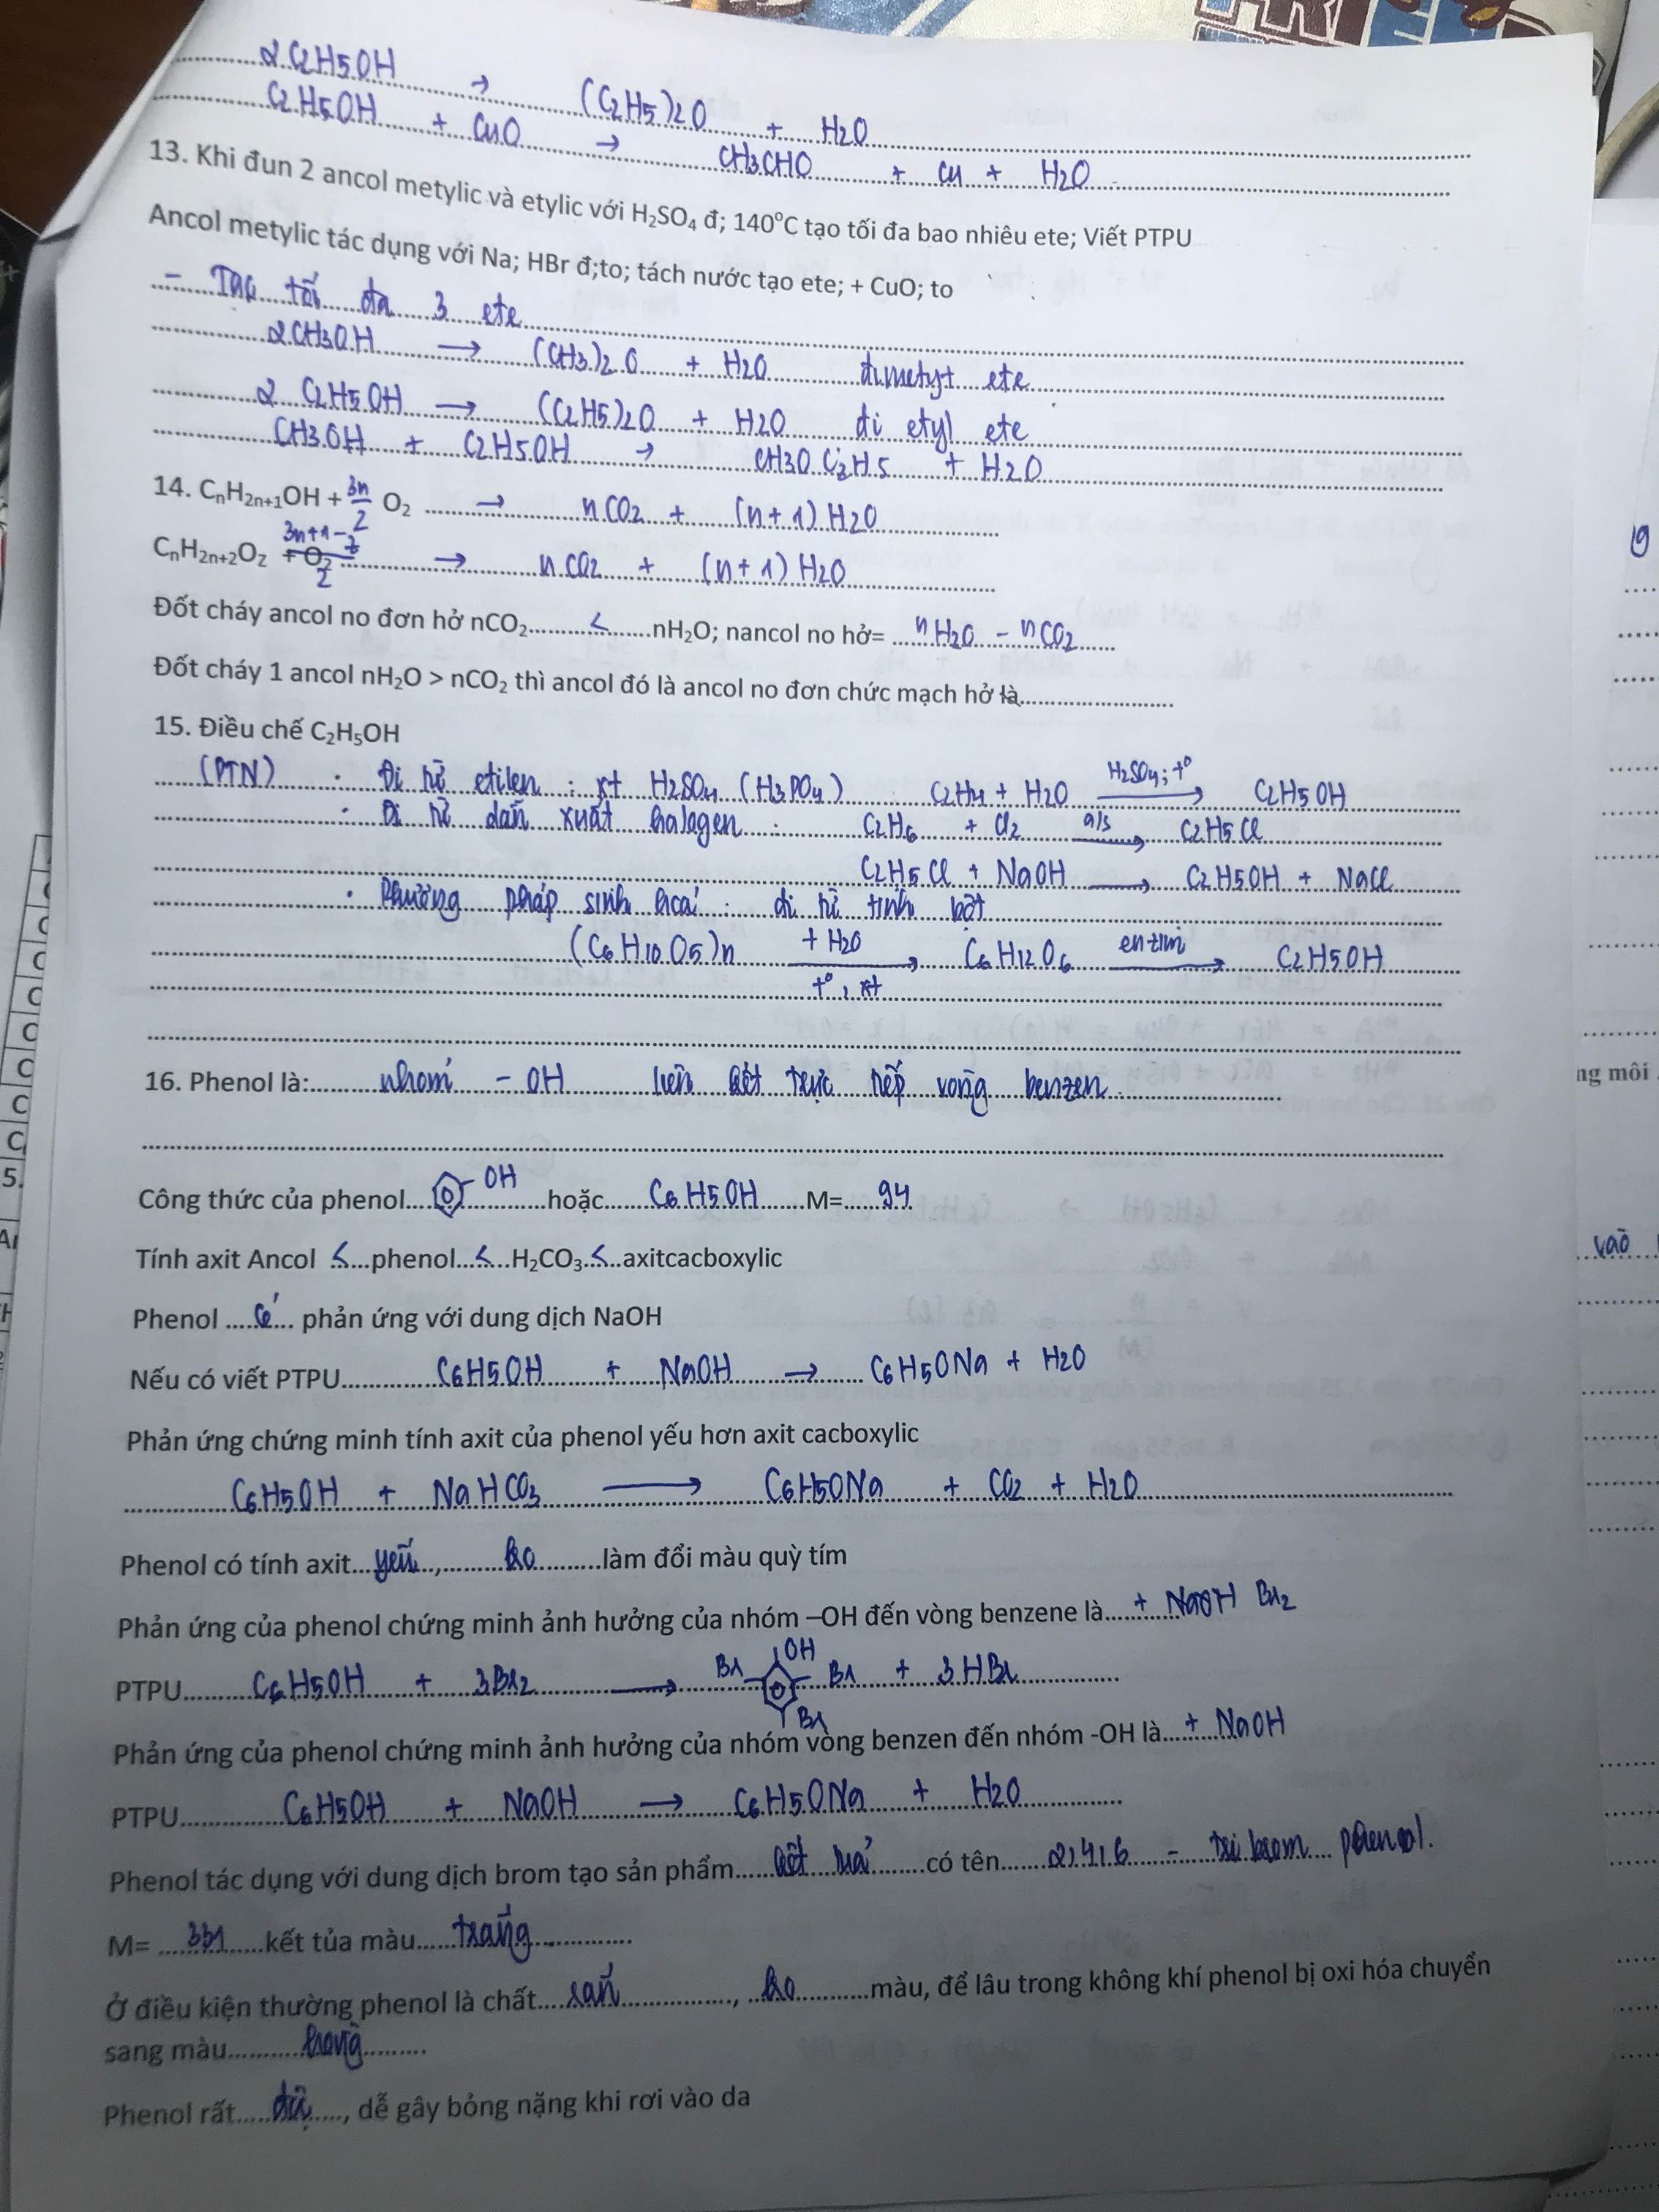 2C2H5OH → (C2H5)2O + H2O
C2H5OH + CuO → CH3CHO + Cu + H2O
13. Khi đun 2 ancol metylic và etylic với H₂SO₄ đ; 140⁰C tạo tối đa bao nhiêu ete; Viết PTPU
Ancol metylic tác dụng với Na; HBr đ;to; tách nước tạo ete; + CuO; to
- Tạo tối đa 3 ete
2CH3OH → (CH3)2O + H2O đimetyt ete
2 C2H5OH → (C2H5)2O + H2O đi etyl ete
CH3OH + C2H5OH → CH3O C2H5 + H2O
14. CₙH₂ₙ₊₁OH + 3n/2 O₂ → nCO2 + (n+1) H2O
CₙH₂ₙ₊₂O_Z + O₂ 3n+1-z/2 → nCO2 + (n+1) H2O
Đốt cháy ancol no đơn hở nCO₂ < nH₂O; nancol no hở= nH2O - nCO2
Đốt cháy 1 ancol nH₂O > nCO₂ thì ancol đó là ancol no đơn chức mạch hở là
15. Điều chế C₂H₅OH
(PTN) . Đi từ etilen : xt H2SO4 (H3PO4) C2H4 + H2O H2SO4; t° → C2H5OH
. Đi từ dẫn xuất halogen : C2H6 + Cl2 a/s → C2H5Cl
C2H5Cl + NaOH → C2H5OH + NaCl
. Phương pháp sinh hoá : đi từ tinh bột
(C6H10O5)n + H2O t°, xt → C6H12O6 enzim → C2H5OH
16. Phenol là: nhóm - OH liên kết trực tiếp vòng benzen
Công thức của phenol OH hoặc C6H5OH M= 94
Tính axit Ancol < phenol < H₂CO₃ < axitcacboxylic
Phenol có phản ứng với dung dịch NaOH
Nếu có viết PTPU C6H5OH + NaOH → C6H5ONa + H2O
Phản ứng chứng minh tính axit của phenol yếu hơn axit cacboxylic
C6H5OH + NaHCO3 → C6H5ONa + CO2 + H2O
Phenol có tính axit yếu, ko làm đổi màu quỳ tím
Phản ứng của phenol chứng minh ảnh hưởng của nhóm –OH đến vòng benzene là + NaOH Br2
PTPU C6H5OH + 3Br2 → Br OH Br Br + 3HBr
Phản ứng của phenol chứng minh ảnh hưởng của nhóm vòng benzen đến nhóm -OH là + NaOH
PTPU C6H5OH + NaOH → C6H5ONa + H2O
Phenol tác dụng với dung dịch brom tạo sản phẩm kết tủa có tên 2,4,6 - tri brom phenol.
M= 331 kết tủa màu trắng
Ở điều kiện thường phenol là chất rắn, ko màu, để lâu trong không khí phenol bị oxi hóa chuyển
sang màu hồng
Phenol rất độc, dễ gây bỏng nặng khi rơi vào da
ng môi
vào
5.